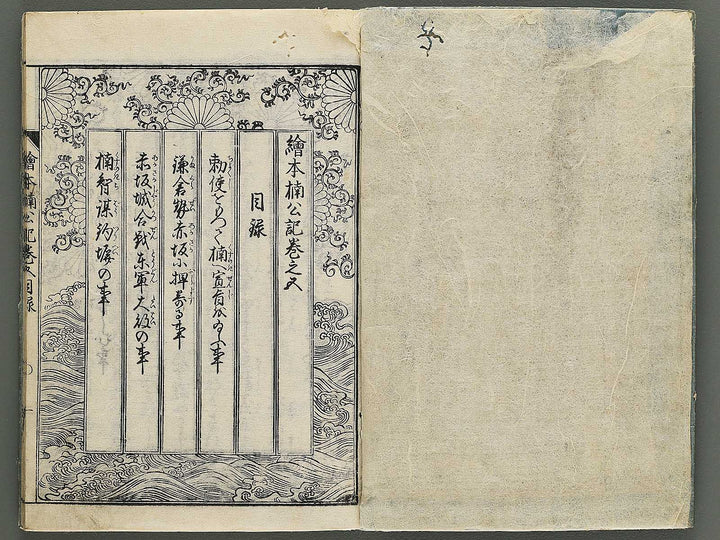 繪本楠公記巻之五
目録
勅使をもつて楠へ宣旨を給ふ事
鎌倉勢赤坂に押寄る事
赤坂城合戦東軍大敗の事
楠智謀釣塀の事
繪本楠公記巻五目録